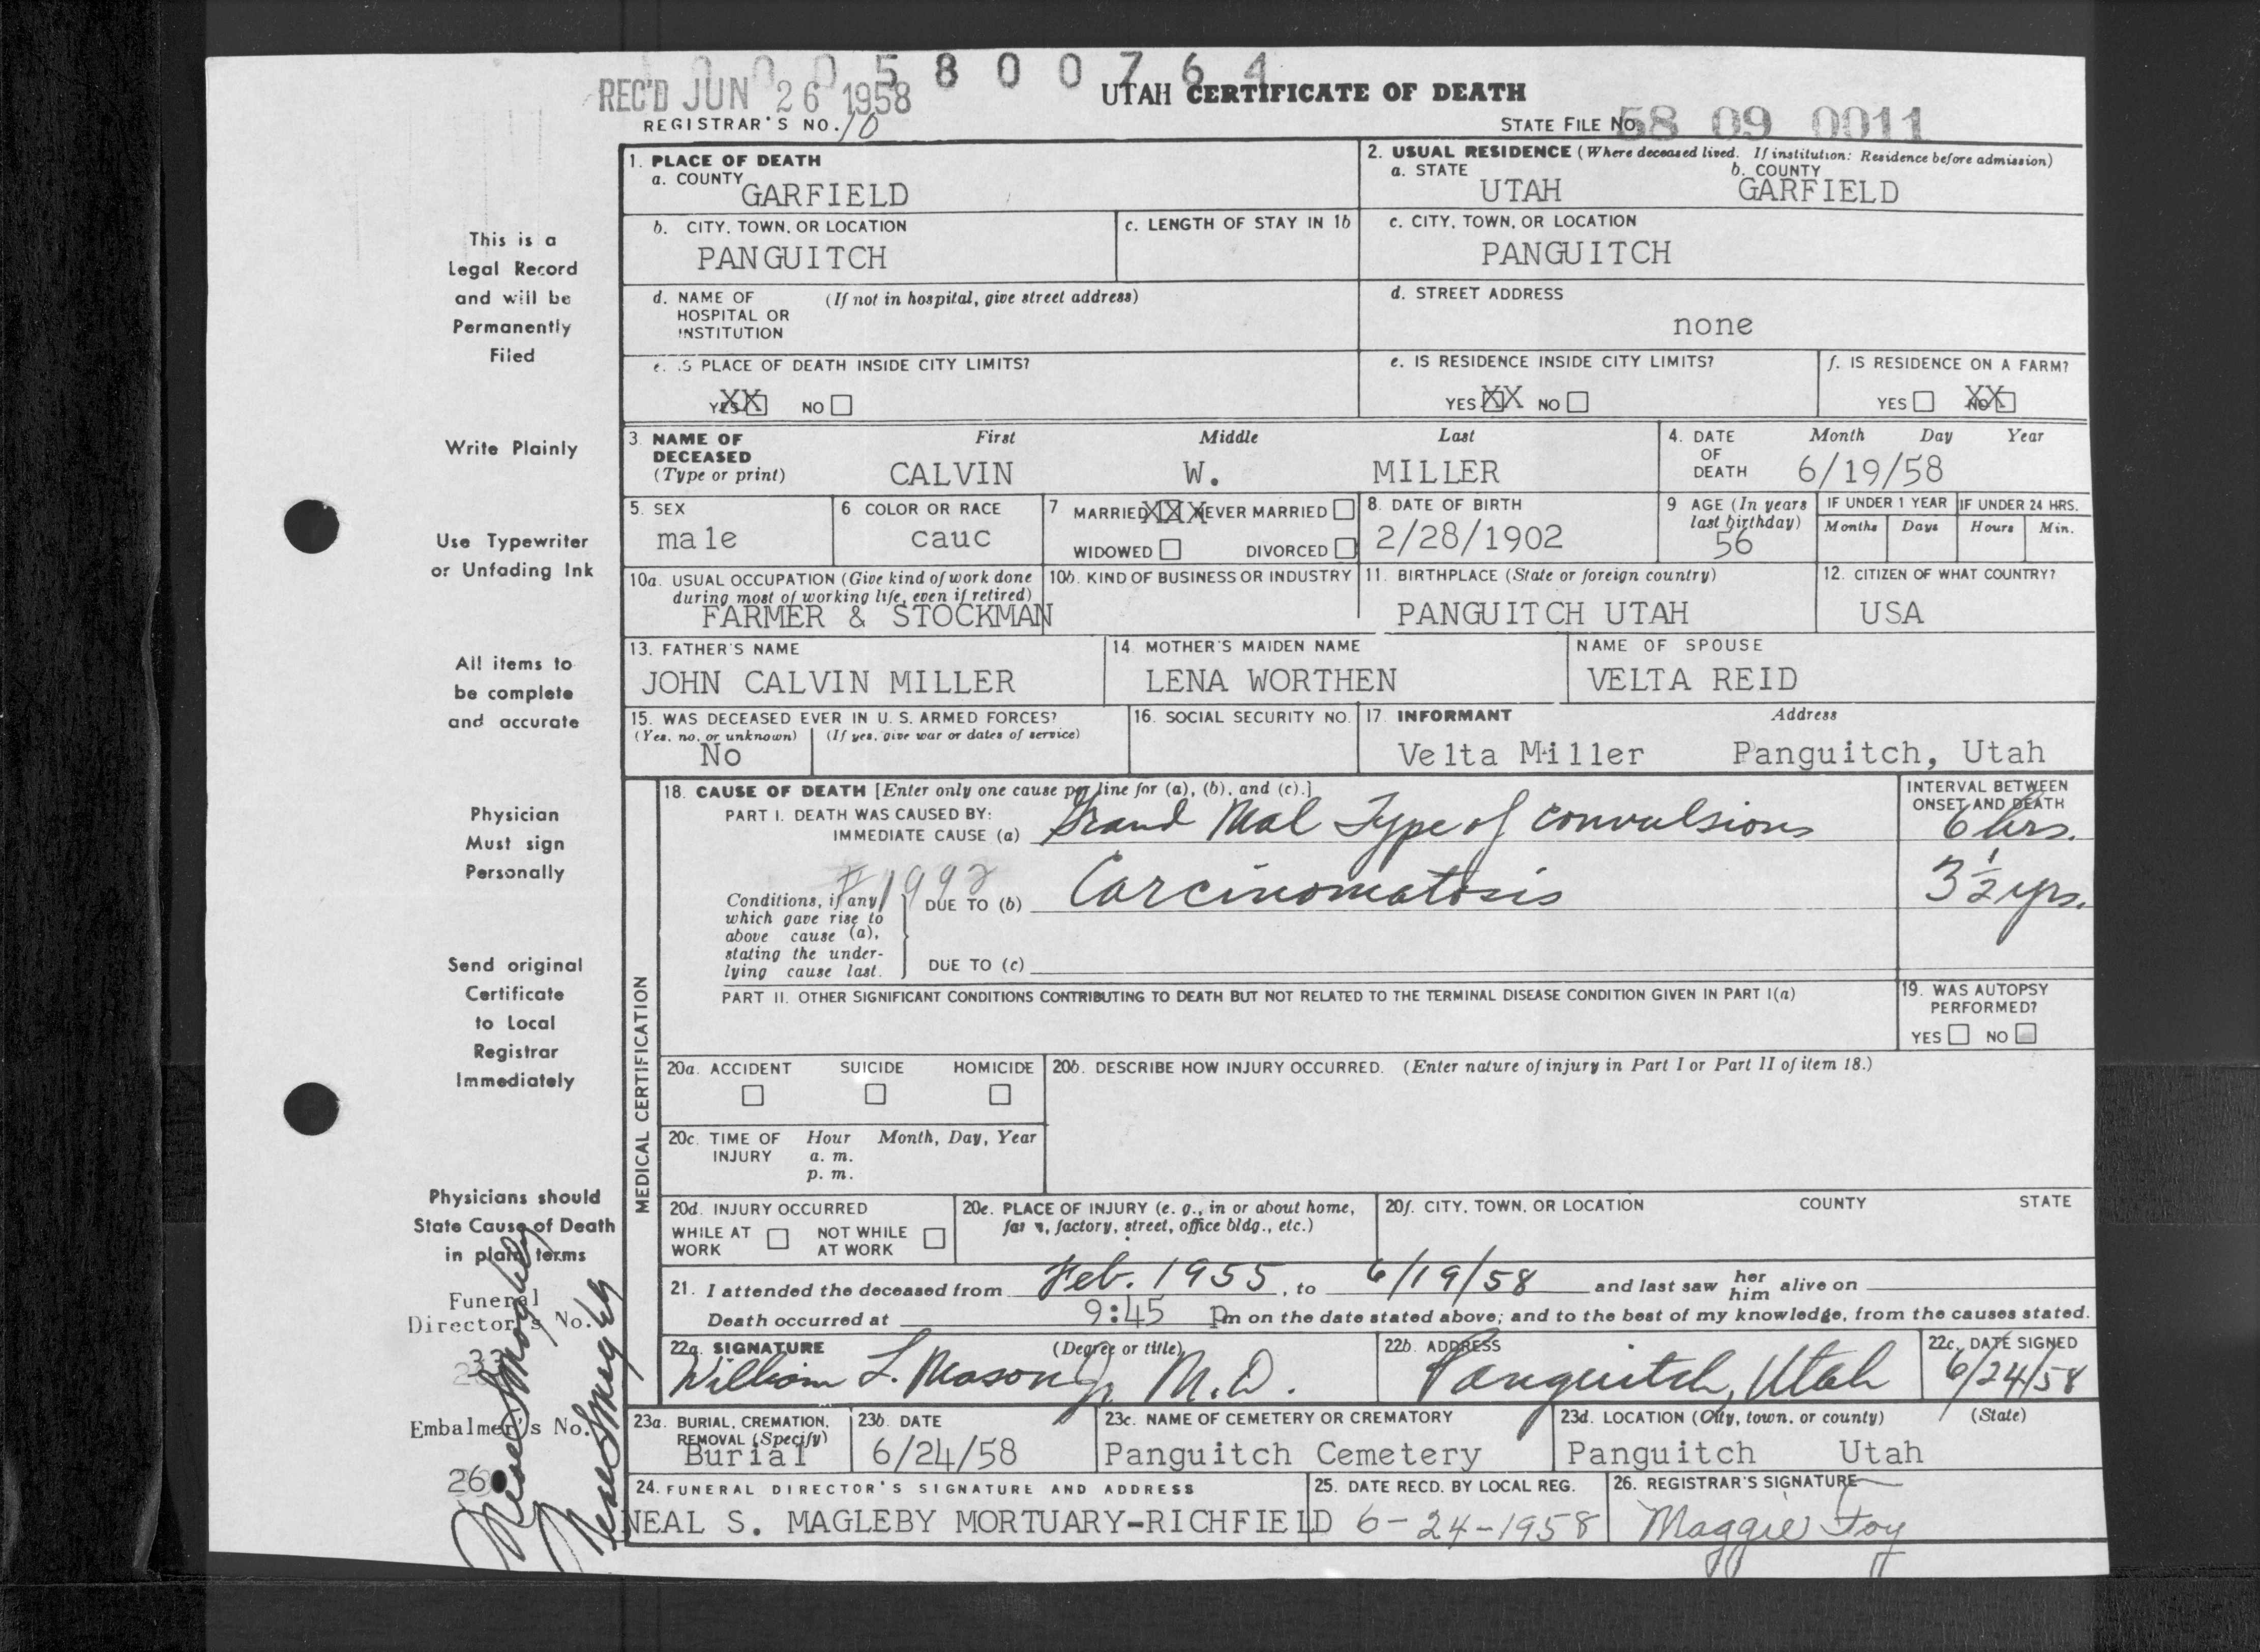 10005800764
REC'D JUN 26 1958
UTAH CERTIFICATE OF DEATH
REGISTRAR'S NO. 10
STATE FILE NO. 58 09 0011
This is a
Legal Record
and will be
Permanently
Filed
Write Plainly
Use Typewriter
or Unfading Ink
All items to
be complete
and accurate
Physician
Must sign
Personally
Send original
Certificate
to Local
Registrar
Immediately
Physicians should
State Cause of Death
in plain terms
Funeral
Director's No.
Embalmer's No.
260
1. PLACE OF DEATH
a. COUNTY
GARFIELD
2. USUAL RESIDENCE (Where deceased lived. If institution: Residence before admission)
a. STATE b. COUNTY
UTAH GARFIELD
b. CITY, TOWN, OR LOCATION
PANGUITCH
c. LENGTH OF STAY IN 1b
c. CITY, TOWN, OR LOCATION
PANGUITCH
d. NAME OF (If not in hospital, give street address)
HOSPITAL OR
INSTITUTION
d. STREET ADDRESS
none
e. IS PLACE OF DEATH INSIDE CITY LIMITS?
YES XX NO
e. IS RESIDENCE INSIDE CITY LIMITS?
YES XX NO
f. IS RESIDENCE ON A FARM?
YES NO XX
3. NAME OF DECEASED
(Type or print)
First Middle Last
CALVIN W. MILLER
4. DATE OF DEATH
Month Day Year
6/19/58
5. SEX
male
6. COLOR OR RACE
cauc
7 MARRIED XXX NEVER MARRIED
WIDOWED DIVORCED
8. DATE OF BIRTH
2/28/1902
9 AGE (In years
last birthday)
56
IF UNDER 1 YEAR IF UNDER 24 HRS.
Months Days Hours Min.
10a. USUAL OCCUPATION (Give kind of work done
during most of working life, even if retired)
FARMER & STOCKMAN
10b. KIND OF BUSINESS OR INDUSTRY
11. BIRTHPLACE (State or foreign country)
PANGUITCH UTAH
12. CITIZEN OF WHAT COUNTRY?
USA
13. FATHER'S NAME
JOHN CALVIN MILLER
14. MOTHER'S MAIDEN NAME
LENA WORTHEN
NAME OF SPOUSE
VELTA REID
15. WAS DECEASED EVER IN U. S. ARMED FORCES?
(Yes, no, or unknown) (If yes, give war or dates of service)
No
16. SOCIAL SECURITY NO.
17. INFORMANT Address
Velta Miller Panguitch, Utah
MEDICAL CERTIFICATION
18. CAUSE OF DEATH [Enter only one cause per line for (a), (b), and (c).]
PART I. DEATH WAS CAUSED BY:
IMMEDIATE CAUSE (a) Grand Mal Type of convulsions
INTERVAL BETWEEN
ONSET AND DEATH
6 hrs.
Conditions, if any,
which gave rise to
above cause (a),
stating the under-
lying cause last.
1992
DUE TO (b) Carcinomatosis
3 1/2 yrs.
DUE TO (c)
PART II. OTHER SIGNIFICANT CONDITIONS CONTRIBUTING TO DEATH BUT NOT RELATED TO THE TERMINAL DISEASE CONDITION GIVEN IN PART I(a)
19. WAS AUTOPSY
PERFORMED?
YES NO
20a. ACCIDENT SUICIDE HOMICIDE
20b. DESCRIBE HOW INJURY OCCURRED. (Enter nature of injury in Part I or Part II of item 18.)
20c. TIME OF INJURY Hour Month, Day, Year
a. m.
p. m.
20d. INJURY OCCURRED
WHILE AT WORK NOT WHILE AT WORK
20e. PLACE OF INJURY (e. g., in or about home,
farm, factory, street, office bldg., etc.)
20f. CITY, TOWN, OR LOCATION COUNTY STATE
21. I attended the deceased from Feb. 1955, to 6/19/58 and last saw her him alive on
Death occurred at 9:45 Pm on the date stated above; and to the best of my knowledge, from the causes stated.
22a. SIGNATURE (Degree or title)
William L. Mason Jr. M.D.
22b. ADDRESS
Panguitch, Utah
22c. DATE SIGNED
6/24/58
23a. BURIAL, CREMATION,
REMOVAL (Specify)
Burial
23b. DATE
6/24/58
23c. NAME OF CEMETERY OR CREMATORY
Panguitch Cemetery
23d. LOCATION (City, town, or county) (State)
Panguitch Utah
24. FUNERAL DIRECTOR'S SIGNATURE AND ADDRESS
NEAL S. MAGLEBY MORTUARY-RICHFIELD
25. DATE RECD. BY LOCAL REG.
6-24-1958
26. REGISTRAR'S SIGNATURE
Maggie Foy
Neal S Magleby
Neal S Magleby